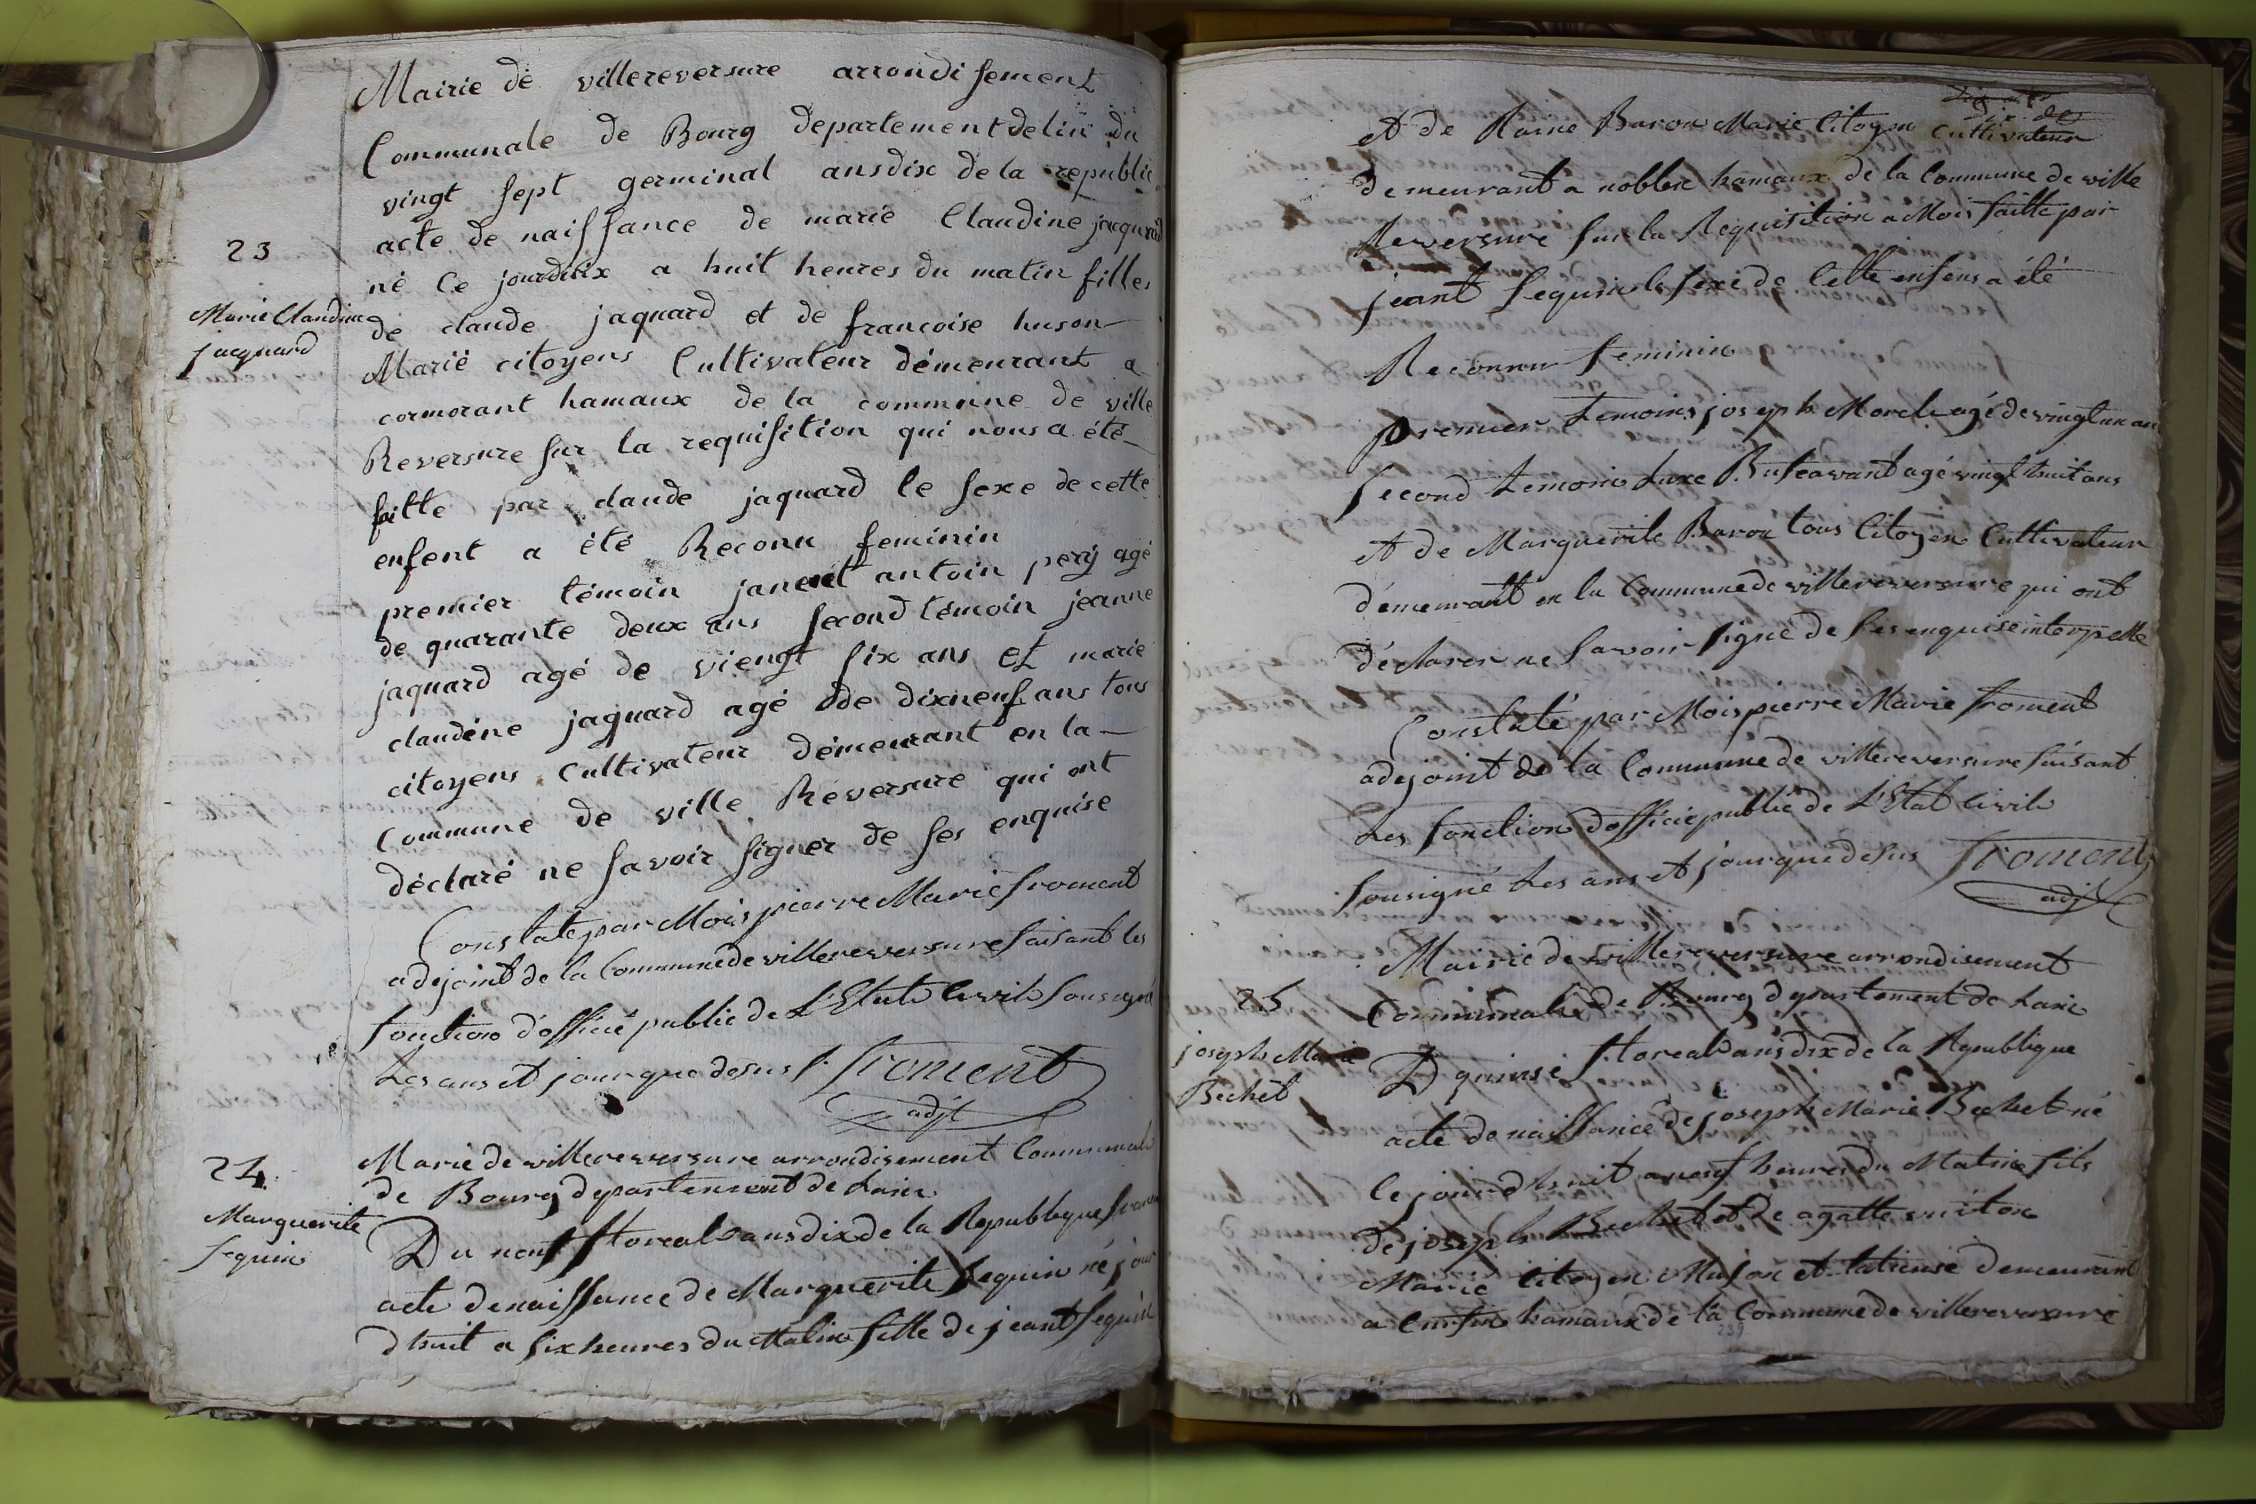 Mairie de villereversure arrondisement
Communale de Bourg departement delin du
vingt sept germinal ans dix de la republic
23
acte de naissance de marie Claudine jaquard
né ce jourduix a huit heures du matin filles
Marie Claudine
jacquard
de claude jaquard et de francoise huson
Marië citoyens Cultivateur démeurant a
cormorant hamaux de la commune de ville
Reversure sur la requisition qui nous a été
faitte par claude jaquard le sexe de cette
enfent a été Reconu feminin
premier témoin janent antoin perÿ agé
de quarante deux ans second témoin jeanne
jaquard agé de viengt six ans et marie
claudéne jaquard agé de dixneuf ans tous
citoyens Cultivateur démeurant en la
Commune de ville Reversure qui ont
déclaré ne savoir signer de ses enquise
Constate par Mois pierre Marie froment
adejoint de la Commune de villereversure faisant les
fonction d'officié public de L'Etat Civil sousigné
Les ans et jour que desus froment
adjt
24
Marguerite
sequin
Marie de villereversure arrondisement Communale
de Bourg departement de Lain
Du neuf floreal ans dix de la Republique
acte de naissance de Marguerite sequin né jour
dhuit a six heures du Matin fille de jeant sequin
et de Raine Baron Marie Citoyen Cultivateur
demeurant a noblen hamaux de la Commune de ville
Reversure sur la Requisition a Mois faitte par
jeant sequin le sexe de Cette enfens a été
Reconnu feminin
premier temoins joseph Morel agé de vingt un an
second temoin Luxe Buteavant agé vingt huit ans
et de Marguerite Baron tous Citoyen Cultivateur
démeurant en la Commune de villereversure qui ont
déclarer ne savoir signé de ses enquise interpelle
Constaté par Mois pierre Marie froment
adejoint de la Commune de villereversure faisant
Les fonction dofficie public de L'Etat Civil
sousigné Les ans et jour que desus froment
adjt
Mairie de villereversure arrondisement
25
Communale de Bourg departement de Lain
joseph Marie
Bechet
D quinse floreal ans dix de la Republique
acte de naissance de joseph Marie Bechet né
Ce jourdhuit a neuf heures du Matin fils
de joseph Bechet et de agatte
Marie Citoyen Mason et demeurant
a hamaux de la Commune de villereversure
239